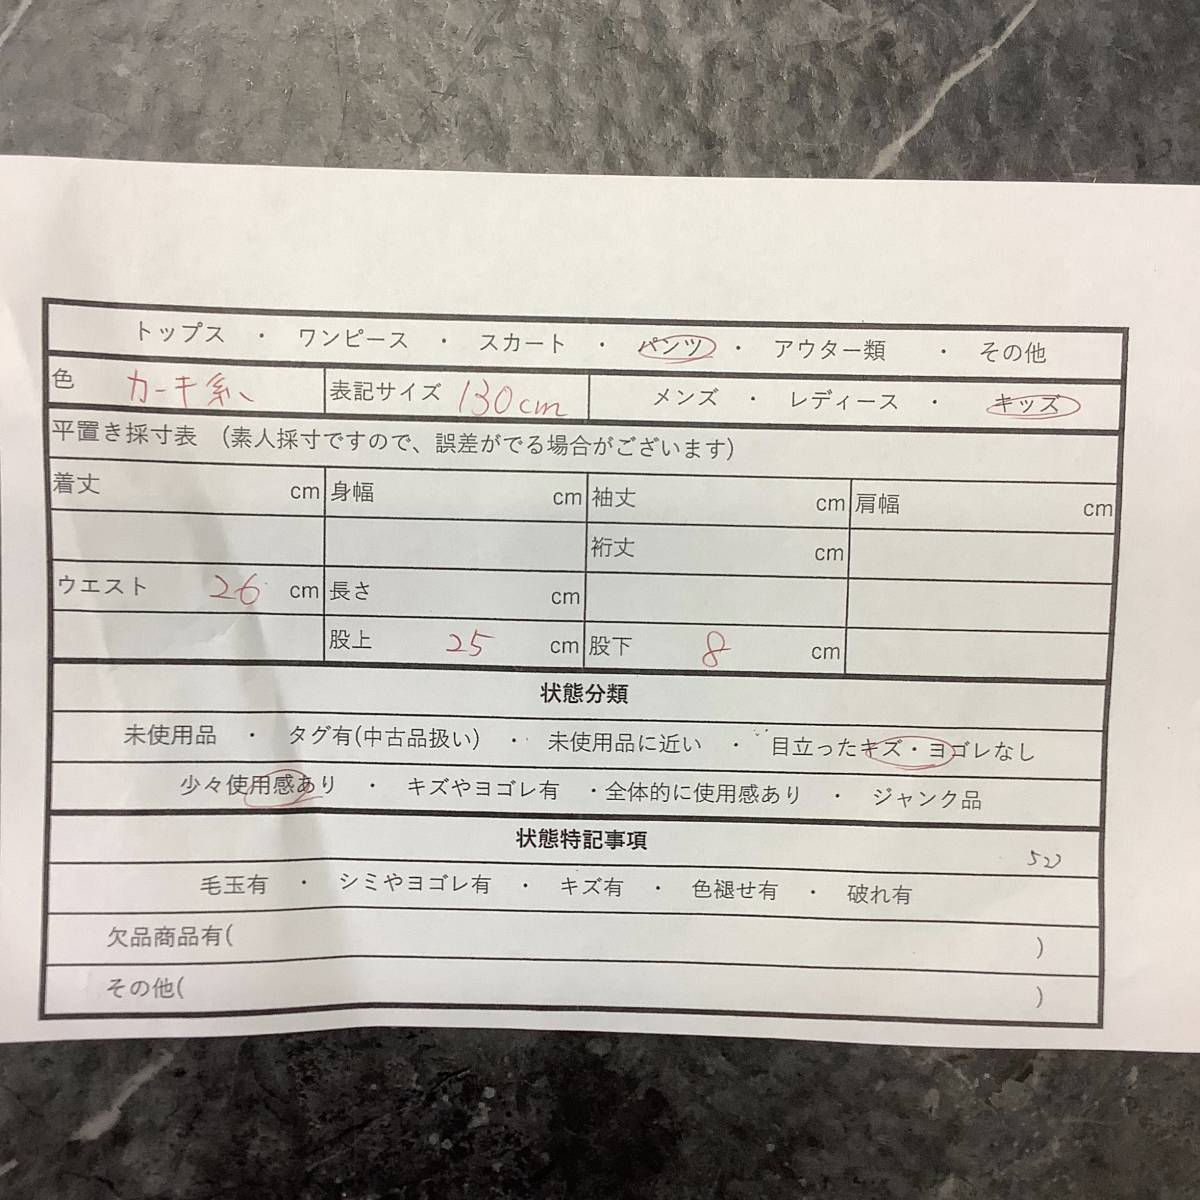 トップス ・ ワンピース ・ スカート ・ パンツ ・ アウター類 ・ その他
色 カーキ系 表記サイズ 130cm メンズ ・ レディース ・ キッズ
平置き採寸表 (素人採寸ですので、誤差がでる場合がございます)
着丈 cm 身幅 cm 袖丈 cm 肩幅 cm
裄丈 cm
ウエスト 26 cm 長さ cm
股上 25 cm 股下 8 cm
状態分類
未使用品 ・ タグ有(中古品扱い) ・ 未使用品に近い ・ 目立ったキズ・ヨゴレなし
少々使用感あり ・ キズやヨゴレ有 ・全体的に使用感あり ・ ジャンク品
状態特記事項
毛玉有 ・ シミやヨゴレ有 ・ キズ有 ・ 色褪せ有 ・ 破れ有
欠品商品有( )
その他( )